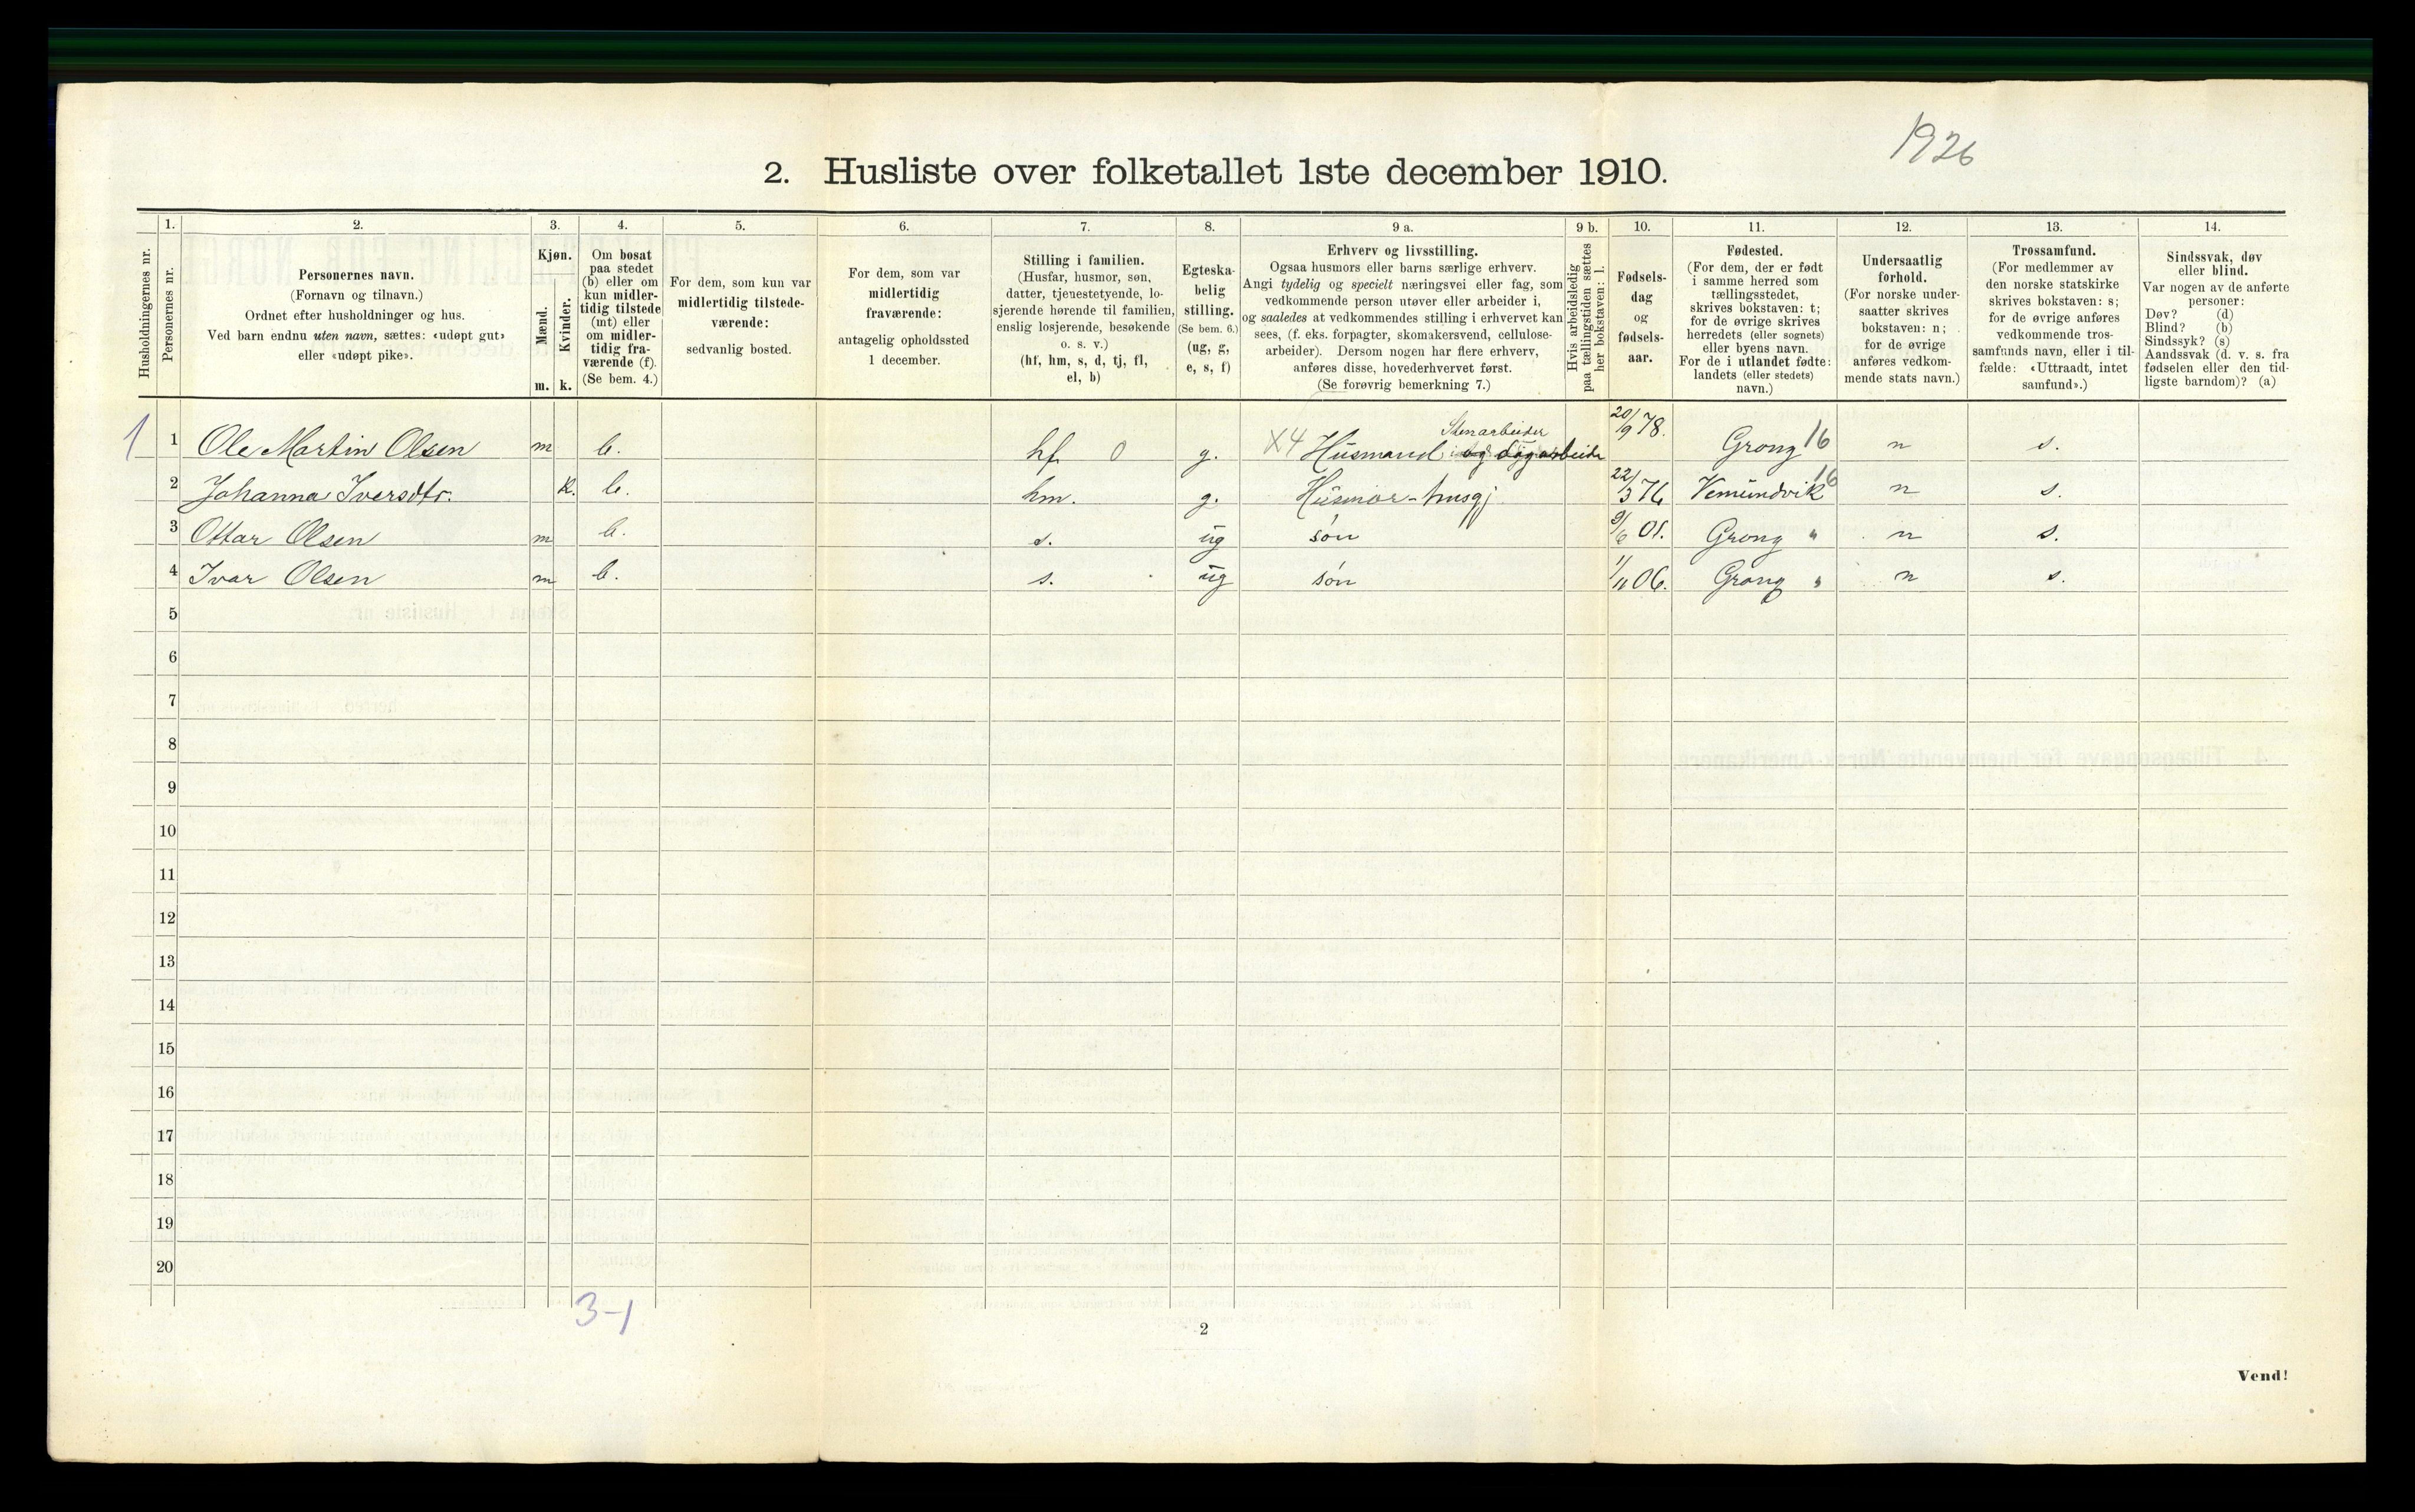 1926
2. Husliste over folketallet 1ste december 1910.
Husholdningernes nr.
1.
Personernes nr.
2.
Personernes navn.
(Fornavn og tilnavn.)
Ordnet efter husholdninger og hus.
Ved barn endnu uten navn, sættes: «udøpt gut»
eller «udøpt pike».
3.
Kjøn.
Mænd.
Kvinder.
m. k.
4.
Om bosat
paa stedet
(b) eller om
kun midler-
tidig tilstede
(mt) eller
om midler-
tidig fra-
værende (f).
(Se bem. 4.)
5.
For dem, som kun var
midlertidig tilstede-
værende:
sedvanlig bosted.
6.
For dem, som var
midlertidig
fraværende:
antagelig opholdssted
1 december.
7.
Stilling i familien.
(Husfar, husmor, søn,
datter, tjenestetyende, lo-
sjerende hørende til familien,
enslig losjerende, besøkende
o. s. v.)
(hf, hm, s, d, tj, fl,
el, b)
8.
Egteska-
belig
stilling.
(Se bem. 6.)
(ug, g,
e, s, f)
9 a.
Erhverv og livsstilling.
Ogsaa husmors eller barns særlige erhverv.
Angi tydelig og specielt næringsvei eller fag, som
vedkommende person utøver eller arbeider i,
og saaledes at vedkommendes stilling i erhvervet kan
sees, (f. eks. forpagter, skomakersvend, cellulose-
arbeider). Dersom nogen har flere erhverv,
anføres disse, hovederhvervet først.
(Se forøvrig bemerkning 7.)
9 b.
Hvis arbeidsledig
paa tællingstiden sættes
her bokstaven: l.
10.
Fødsels-
dag
og
fødsels-
aar.
11.
Fødested.
(For dem, der er født
i samme herred som
tællingsstedet,
skrives bokstaven: t;
for de øvrige skrives
herredets (eller sognets)
eller byens navn.
For de i utlandet fødte:
landets (eller stedets)
navn.)
12.
Undersaatlig
forhold.
(For norske under-
saatter skrives
bokstaven: n;
for de øvrige
anføres vedkom-
mende stats navn.)
13.
Trossamfund.
(For medlemmer av
den norske statskirke
skrives bokstaven: s;
for de øvrige anføres
vedkommende tros-
samfunds navn, eller i til-
fælde: «Uttraadt, intet
samfund».)
14.
Sindssvak, døv
eller blind.
Var nogen av de anførte
personer:
Døv? (d)
Blind? (b)
Sindssyk? (s)
Aandssvak (d. v. s. fra
fødselen eller den tid-
ligste barndom)? (a)
Stenarbeider
1 1 Ole Martin Olsen m b. hf. 0 g. X4 Husmand og dagarbeide 20/9 78. Grong 16 n s.
2 Johanna Iversdtr. k. b. hm. g. Husmor - husgj 22/3 76 Vemundvik 16 n s.
3 Ottar Olsen m b. s. ug søn 9/6 01. Grong " n s.
4 Ivar Olsen m b. s. ug søn 1/11 06. Grong " n s.
5
6
7
8
9
10
11
12
13
14
15
16
17
18
19
20
3-1
2
Vend!